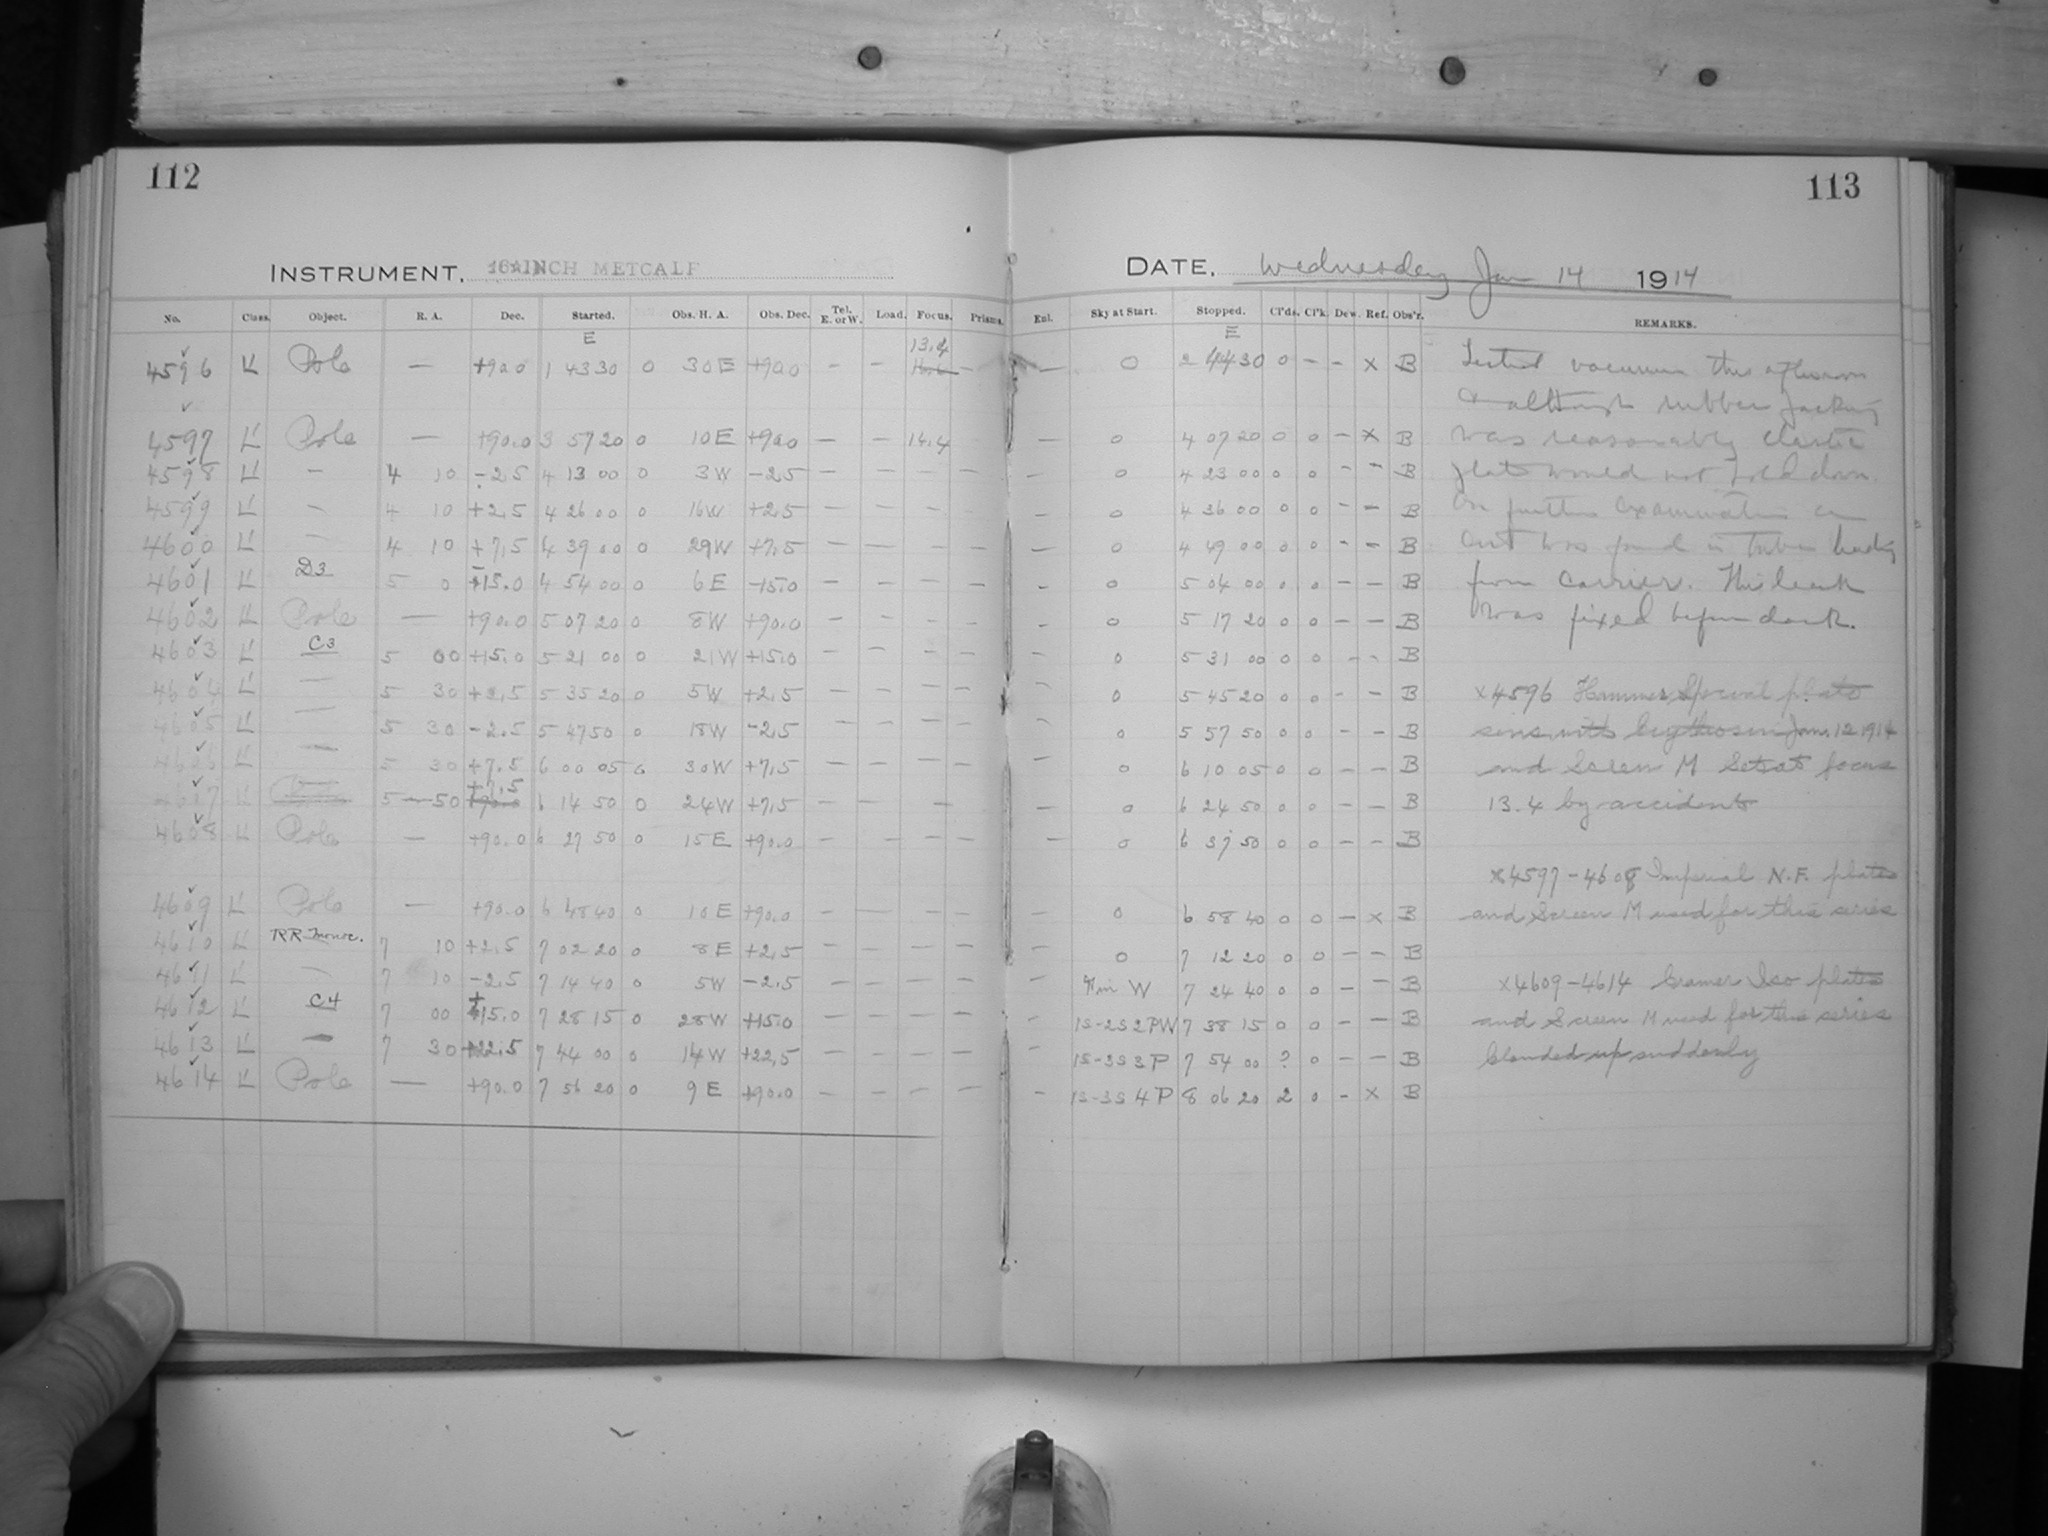 112
113
INSTRUMENT. 16-INCH METCALF
DATE. Wednesday Jan 14 1914
No. Class. Object. R. A. Dec. Started. Obs. H. A. Obs. Dec. Tel. E. or W. Load. Focus. Prisms. Enl. Sky at Start. Stopped. Cl'ds. Cl'k. Dew. Ref. Obs'r. REMARKS.
E E
13.4
4596 L Pole — +90.0 1 43 30 0 30 E +90.0 — — — — 0 2 44 30 0 — — x B Tested vacuum this afternoon
& although rubber packing
4597 L Pole — +90.0 3 57 20 0 10 E +90.0 — — 14.4 — 0 4 07 20 0 0 — x B was reasonably elastic
4598 L — 4 10 -2.5 4 13 00 0 3 W -2.5 — — — — — 0 4 23 00 0 0 — — B plate would not hold down.
4599 L — 4 10 +2.5 4 26 00 0 16 W +2.5 — — — — 0 4 36 00 0 0 — — B On further examination a
4600 L — 4 10 +7.5 4 39 00 0 29 W +7.5 — — — — — 0 4 49 00 0 0 — — B cut was found in tube leading
4601 L D3 5 0 -15.0 4 54 00 0 6 E -15.0 — — — — — 0 5 04 00 0 0 — — B from carrier. This leak
4602 L Pole — +90.0 5 07 20 0 8 W +90.0 — — — — — 0 5 17 20 0 0 — — B was fixed before dark.
4603 L C3 5 00 +15.0 5 21 00 0 21 W +15.0 — — — — — 0 5 31 00 0 0 — — B
4604 L — 5 30 +2.5 5 35 20 0 5 W +2.5 — — — — — 0 5 45 20 0 0 — — B x4596 Hammer Special plate
4605 L — 5 30 -2.5 5 47 50 0 18 W -2.5 — — — — — 0 5 57 50 0 0 — — B sens. with Erythrosin Jan. 12 1914
4606 L — 5 30 +7.5 6 00 05 0 30 W +7.5 — — — — — 0 6 10 05 0 0 — — B and Screen M Set at focus
+7.5
4607 L 5 — 50 +90.0 6 14 50 0 24 W +7.5 — — — — 0 6 24 50 0 0 — — B 13.4 by accident
4608 L Pole — +90.0 6 27 50 0 15 E +90.0 — — — — — 0 6 37 50 0 0 — — B
x4597-4608 Imperial N.F. plates
4609 L Pole — +90.0 6 48 40 0 10 E +90.0 — — — — — 0 6 58 40 0 0 — x B and Screen M used for this series
4610 L RR Monoc. 7 10 +2.5 7 02 20 0 8 E +2.5 — — — — — 0 7 12 20 0 0 — — B
4611 L — 7 10 -2.5 7 14 40 0 5 W -2.5 — — — — — W 7 24 40 0 0 — — B x4609-4614 Cramer Iso plates
4612 L C4 7 00 +15.0 7 28 15 0 28 W +15.0 — — — — — 1S-2S 2PW 7 38 15 0 0 — — B and Screen M used for this series
4613 L — 7 30 +22.5 7 44 00 0 14 W +22.5 — — — — — 1S-3S 3P 7 54 00 ? 0 — — B Clouded up suddenly
4614 L Pole — +90.0 7 56 20 0 9 E +90.0 — — — — — 1S-3S 4P 8 06 20 2 0 — x B